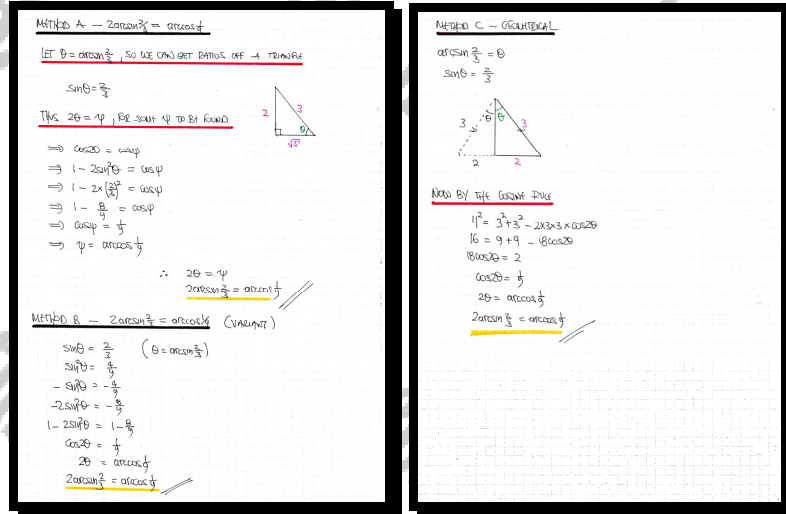 METHOD A – 2arcsin 2/3 = arccos 1/9
LET θ = arcsin 2/3, SO WE CAN GET RATIOS OFF A TRIANGLE
sinθ = 2/3
2
3
θ
√5
THUS 2θ = ψ, FOR SOME ψ TO BE FOUND
⇒ cos2θ = cosψ
⇒ 1 – 2sin²θ = cosψ
⇒ 1 – 2×(2/3)² = cosψ
⇒ 1 – 8/9 = cosψ
⇒ cosψ = 1/9
⇒ ψ = arccos 1/9
∴ 2θ = ψ
2arcsin 2/3 = arccos 1/9
METHOD B – 2arcsin 2/3 = arccos 1/9 (VARIANT)
sinθ = 2/3 (θ = arcsin 2/3)
sin²θ = 4/9
– sin²θ = – 4/9
–2sin²θ = – 8/9
1 – 2sin²θ = 1 – 8/9
cos2θ = 1/9
2θ = arccos 1/9
2arcsin 2/3 = arccos 1/9
METHOD C – GEOMETRICAL
arcsin 2/3 = θ
sinθ = 2/3
θ θ
3 3
2 2
NOW BY THE COSINE RULE
4² = 3² + 3² – 2×3×3×cos2θ
16 = 9 + 9 – 18cos2θ
18cos2θ = 2
cos2θ = 1/9
2θ = arccos 1/9
2arcsin 2/3 = arccos 1/9